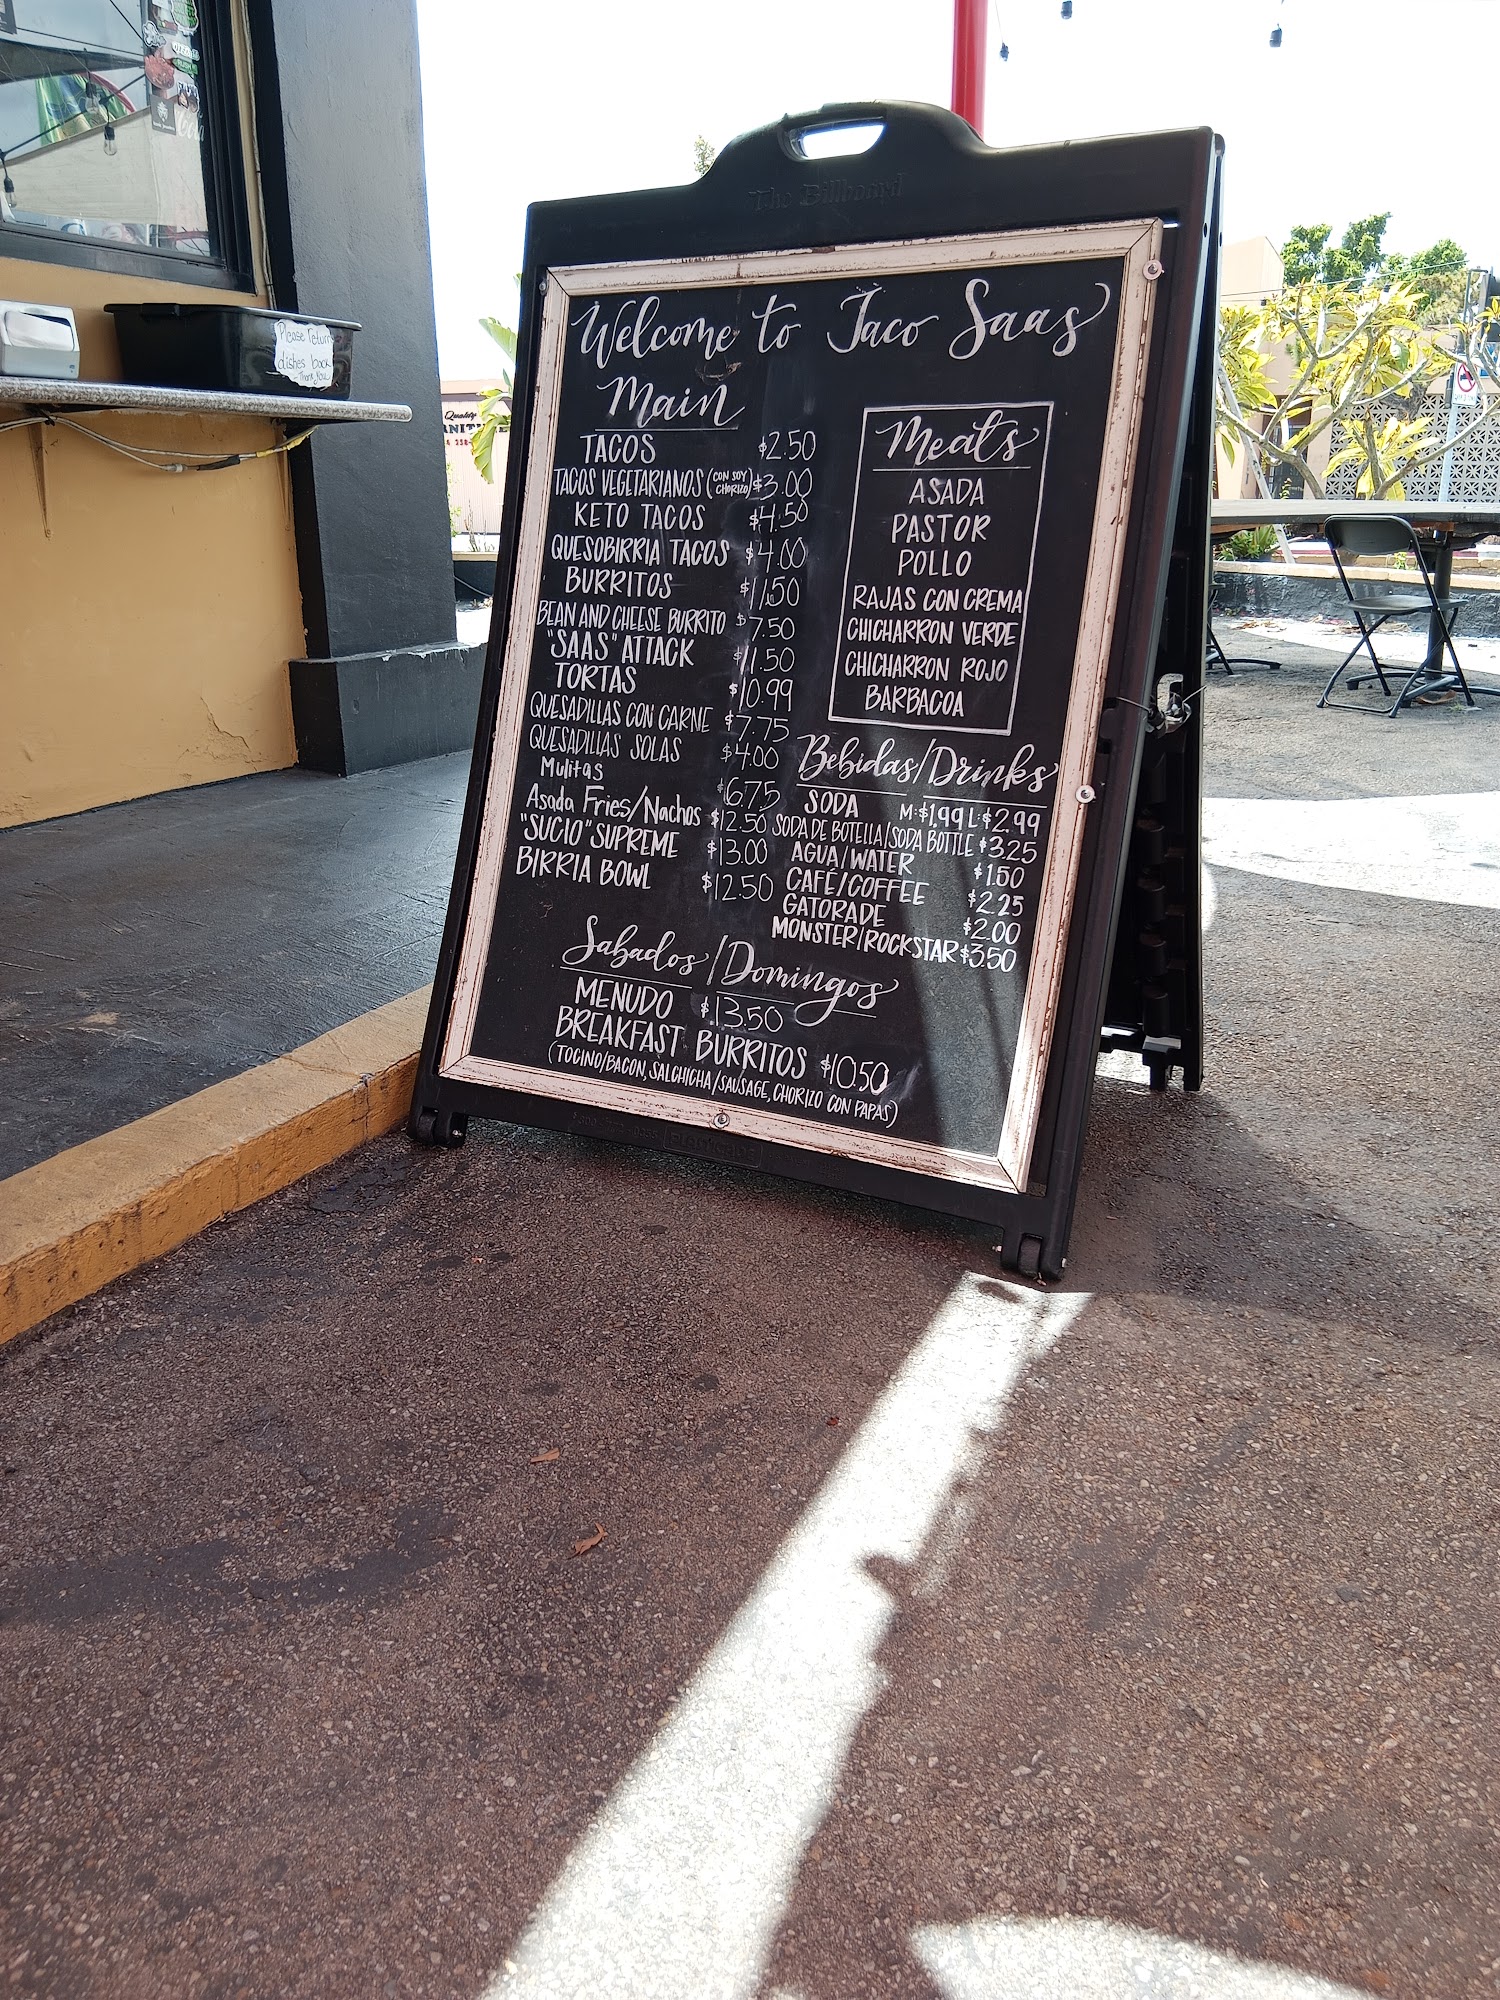 The Billboard
Please return
dishes back
Thank you
Quality
Welcome to Taco Saas
Main
TACOS $2.50
TACOS VEGETARIANOS (CON SOY CHORIZO) $3.00
KETO TACOS $4.50
QUESOBIRRIA TACOS $4.00
BURRITOS $11.50
BEAN AND CHEESE BURRITO $7.50
"SAAS" ATTACK $11.50
TORTAS $10.99
QUESADILLAS CON CARNE $7.75
QUESADILLAS SOLAS $4.00
Mulitas $6.75
Asada Fries/Nachos $12.50
"SUCIO" SUPREME $13.00
BIRRIA BOWL $12.50
Meats
ASADA
PASTOR
POLLO
RAJAS CON CREMA
CHICHARRON VERDE
CHICHARRON ROJO
BARBACOA
Bebidas/Drinks
SODA M:$1.99 L:$2.99
SODA DE BOTELLA/SODA BOTTLE $3.25
AGUA/WATER $1.50
CAFÉ/COFFEE $2.25
GATORADE $2.00
MONSTER/ROCKSTAR $3.50
Sabados/Domingos
MENUDO $13.50
BREAKFAST BURRITOS $10.50
(TOCINO/BACON, SALCHICHA/SAUSAGE, CHORIZO CON PAPAS)